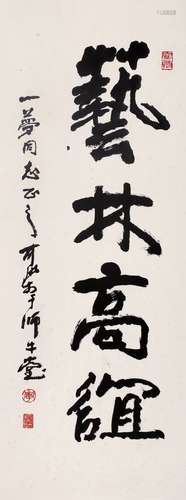 藝林高誼
一夢同志正之 可染於師牛堂